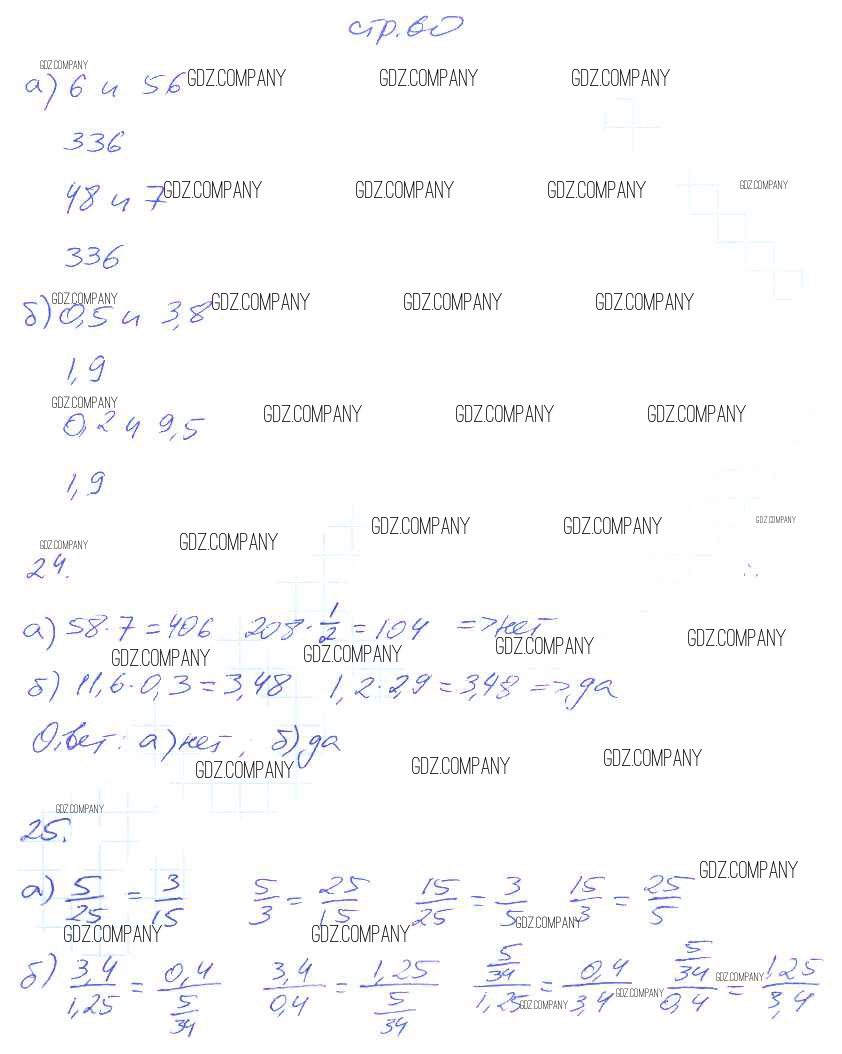 стр. 60
GDZ.COMPANY
а) 6 и 56 GDZ.COMPANY GDZ.COMPANY GDZ.COMPANY
336
48 и 7 GDZ.COMPANY GDZ.COMPANY GDZ.COMPANY GDZ.COMPANY
336
GDZ.COMPANY
б) 0,5 и 3,8 GDZ.COMPANY GDZ.COMPANY GDZ.COMPANY
1,9
GDZ.COMPANY
0,2 и 9,5 GDZ.COMPANY GDZ.COMPANY GDZ.COMPANY
1,9
GDZ.COMPANY GDZ.COMPANY GDZ.COMPANY GDZ.COMPANY GDZ.COMPANY
24.
а) 58·7=406 208·1/2=104 => нет
GDZ.COMPANY GDZ.COMPANY GDZ.COMPANY GDZ.COMPANY
б) 11,6·0,3=3,48 1,2·2,9=3,48 => да
Ответ: а) нет; б) да
GDZ.COMPANY GDZ.COMPANY GDZ.COMPANY
GDZ.COMPANY
25.
GDZ.COMPANY
а) 5/25 = 3/15 5/3 = 25/15 15/25 = 3/5 15/3 = 25/5
GDZ.COMPANY GDZ.COMPANY GDZ.COMPANY
б) 3,4/1,25 = 0,4/(5/34) 3,4/0,4 = 1,25/(5/34) (5/34)/1,25 = 0,4/3,4 (5/34)/0,4 = 1,25/3,4
GDZ.COMPANY GDZ.COMPANY GDZ.COMPANY